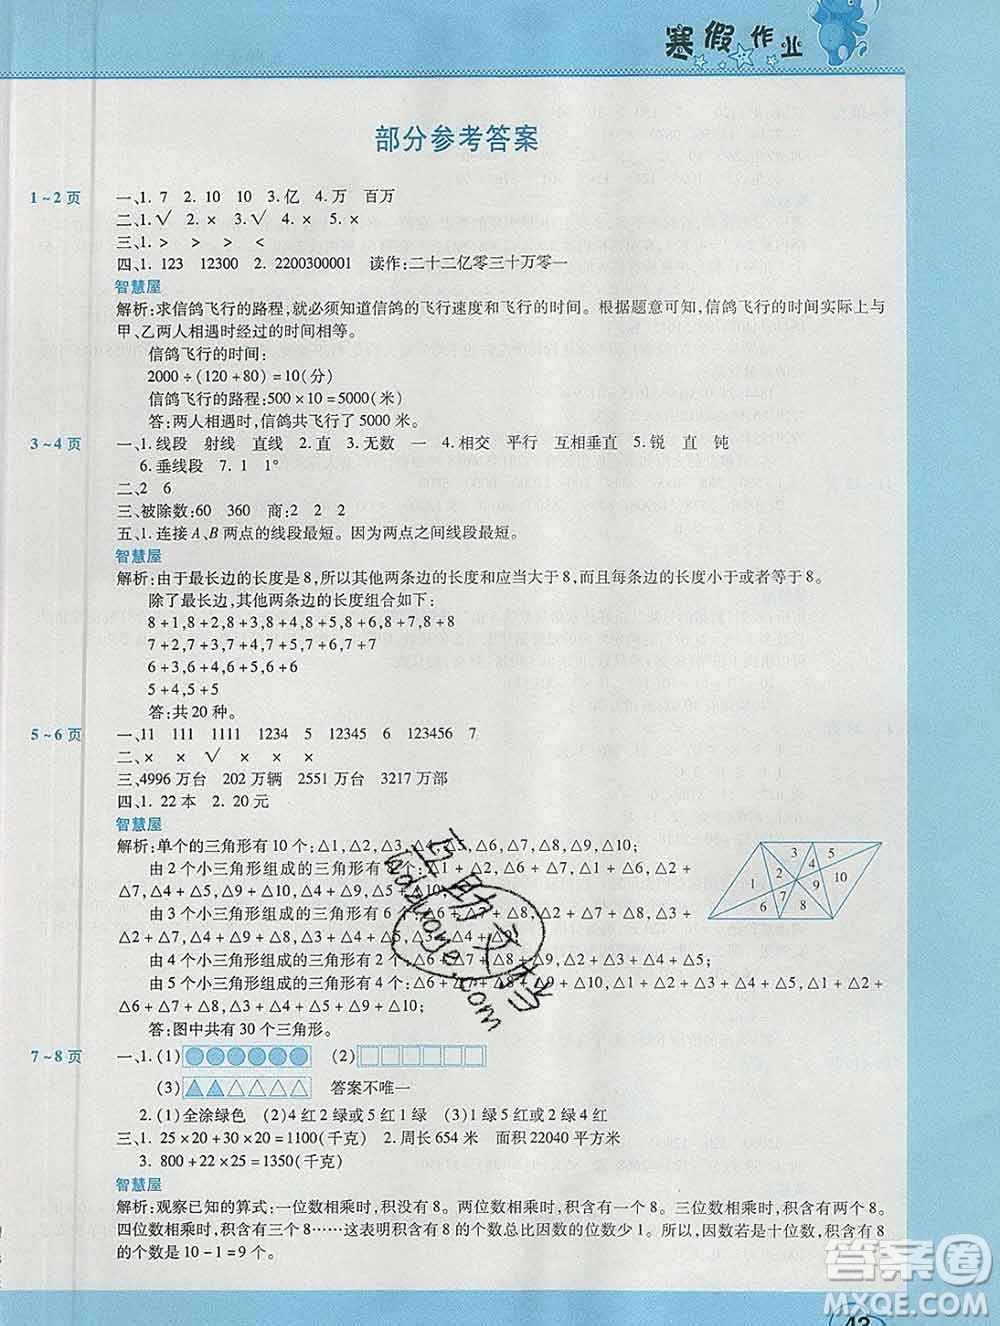 寒假作业
部分参考答案
1~2页
一、1. 7 2. 10 10 3.亿 4.万 百万
二、1.√ 2.× 3.√ 4.× 5.×
三、1.＞ ＞ ＞ ＜
四、1. 123 12300 2. 2200300001 读作:二十二亿零三十万零一
智慧屋
解析:求信鸽飞行的路程,就必须知道信鸽的飞行速度和飞行的时间。根据题意可知,信鸽飞行的时间实际上与
甲、乙两人相遇时经过的时间相等。
信鸽飞行的时间:
2000÷(120+80)=10(分)
信鸽飞行的路程:500×10=5000(米)
答:两人相遇时,信鸽共飞行了 5000 米。
3~4页
一、1.线段 射线 直线 2.直 3.无数 一 4.相交 平行 互相垂直 5.锐 直 钝
6.垂线段 7. 1 1°
二、2 6
三、被除数:60 360 商:2 2 2
五、1.连接A、B两点的线段最短。因为两点之间线段最短。
智慧屋
解析:由于最长边的长度是8,所以其他两条边的长度和应当大于8,而且每条边的长度小于或者等于8。
除了最长边,其他两条边的长度组合如下:
8+1,8+2,8+3,8+4,8+5,8+6,8+7,8+8
7+2,7+3,7+4,7+5,7+6,7+7
6+3,6+4,6+5,6+6
5+4,5+5
答:共20种。
5~6页
一、11 111 1111 1234 5 12345 123456 7
二、× × √ × ×
三、4996万台 202万辆 2551万台 3217万部
四、1. 22本 2. 20元
智慧屋
解析:单个的三角形有10个:△1,△2,△3,△4,△5,△6,△7,△8,△9,△10;
由2个小三角形组成的三角形有 △1+△2,△6+△7,△3+
△2,△5+△9,△7+△8,△4+△5,△9+△10,△8+△9;
由3个小三角形组成的三角形有6个 △6+△7+△8,
△2+△3+△4,
由4个小三角形组成的三角形有2个:
由5个小三角形组成的三角形有4个:
答:图中共有30个三角形。
1 2 3 4 5 6 7 8 9 10
7~8页
一、1. (1) (2)
(3) 答案不唯一
2. (1)全涂绿色 (2)4红2绿或5红1绿 (3)1绿5红或2绿4红
三、1. 25×20+30×20=1100(千克) 2.周长654米 面积22040平方米
3. 800+22×25=1350(千克)
智慧屋
解析:观察已知的算式:一位数相乘时,积没有8。两位数相乘时,积含有一个8。三位数相乘时,积含有两个8。
四位数相乘时,积含有三个8……这表明积含有8的个数总比因数的位数少1。所以,因数若是十位数,积含有8
的个数是10-1=9个。
答案圈
MXQE.COM
43